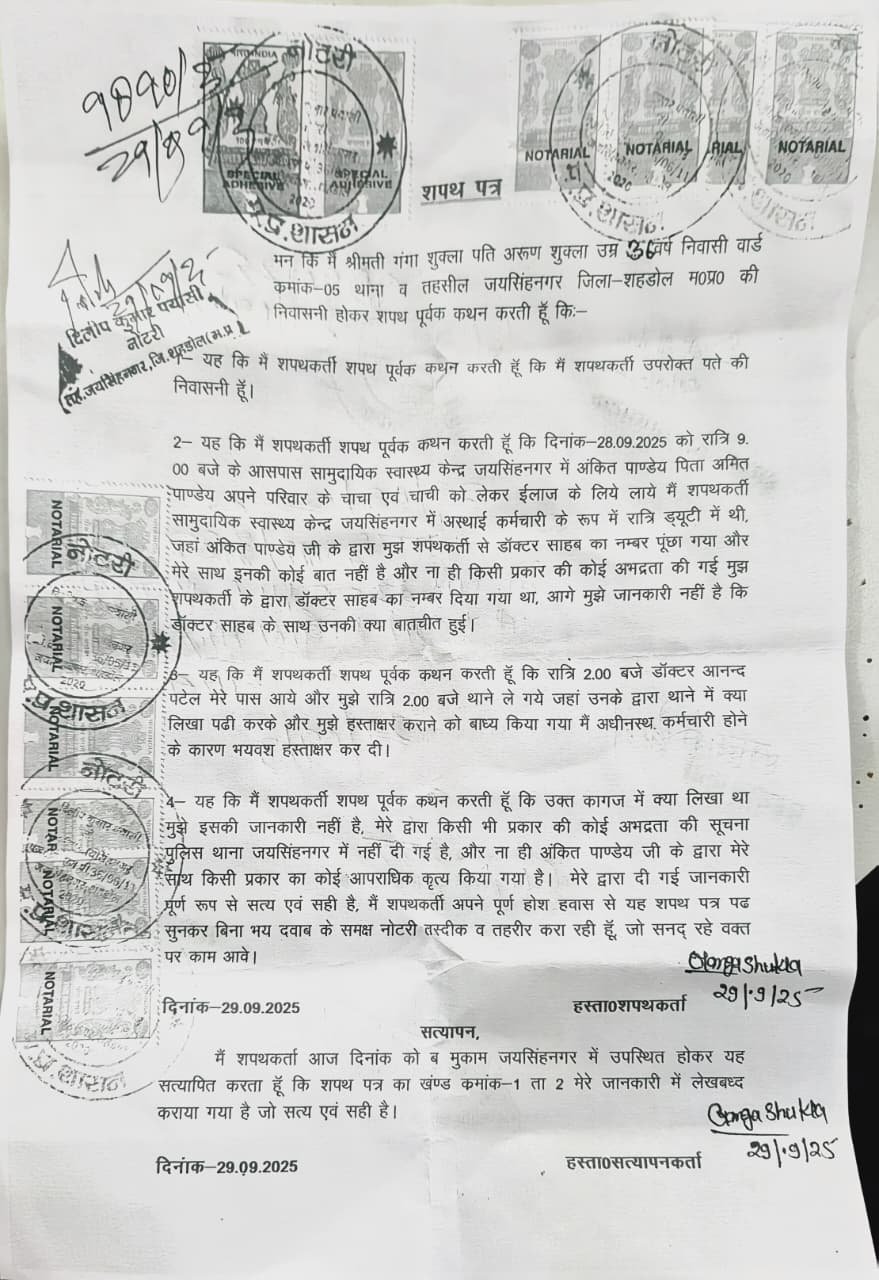 नोटरी
SPECIAL ADHESIVE
SPECIAL ADHESIVE
2020
म.प्र.शासन
नोटरी
NOTARIAL
NOTARIAL
NOTARIAL
2020
प्र.शासन
शपथ पत्र
मन कि मै श्रीमती गंगा शुक्ला पति अरूण शुक्ला उम्र 36 वर्ष निवासी वार्ड
कमांक-05 थाना व तहसील जयसिंहनगर जिला-शहडोल म0प्र0 की
निवासनी होकर शपथ पूर्वक कथन करती हूॅ कि:-
दिलीप कुमार पयासी
नोटरी
तह.जयसिंहनगर, जि.शहडोल(म.प्र.)
1- यह कि मैं शपथकर्ती शपथ पूर्वक कथन करती हूॅ कि मैं शपथकर्ती उपरोक्त पते की
निवासनी हूॅ।
2- यह कि मैं शपथकर्ती शपथ पूर्वक कथन करती हूॅ कि दिनांक-28.09.2025 को रात्रि 9.
00 बजे के आसपास सामुदायिक स्वास्थ्य केन्द्र जयसिंहनगर में अंकित पाण्डेय पिता अमित
पाण्डेय अपने परिवार के चाचा एवं चाची को लेकर ईलाज के लिये लाये मैं शपथकर्ती
सामुदायिक स्वास्थ्य केन्द्र जयसिंहनगर में अस्थाई कर्मचारी के रूप में रात्रि ड्यूटी में थी,
जहां अंकित पाण्डेय जी के द्वारा मुझ शपथकर्ती से डॉक्टर साहब का नम्बर पूंछा गया और
मेरे साथ इनकी कोई बात नहीं है और ना ही किसी प्रकार की कोई अभद्रता की गई मुझ
शपथकर्ती के द्वारा डॉक्टर साहब का नम्बर दिया गया था, आगे मुझे जानकारी नहीं है कि
डॉक्टर साहब के साथ उनकी क्या बातचीत हुई।
3- यह कि मैं शपथकर्ती शपथ पूर्वक कथन करती हूॅ कि रात्रि 2.00 बजे डॉक्टर आनन्द
पटेल मेरे पास आये और मुझे रात्रि 2.00 बजे थाने ले गये जहां उनके द्वारा थाने में क्या
लिखा पढी करके और मुझे हस्ताक्षर कराने को बाध्य किया गया मैं अधीनस्थ कर्मचारी होने
के कारण भयवश हस्ताक्षर कर दी।
4- यह कि मैं शपथकर्ती शपथ पूर्वक कथन करती हूॅ कि उक्त कागज में क्या लिखा था
मुझे इसकी जानकारी नहीं है, मेरे द्वारा किसी भी प्रकार की कोई अभद्रता की सूचना
पुलिस थाना जयसिंहनगर में नहीं दी गई है, और ना ही अंकित पाण्डेय जी के द्वारा मेरे
साथ किसी प्रकार का कोई आपराधिक कृत्य किया गया है। मेरे द्वारा दी गई जानकारी
पूर्ण रूप से सत्य एवं सही है, मैं शपथकर्ती अपने पूर्ण होश हवास से यह शपथ पत्र पढ
सुनकर बिना भय दवाब के समक्ष नोटरी तस्दीक व तहरीर करा रही हूॅ, जो सनद् रहे वक्त
पर काम आवे।
Ganga Shukla
29/9/25
दिनांक-29.09.2025
हस्ता0शपथकर्ता
सत्यापन,
मैं शपथकर्ता आज दिनांक को ब मुकाम जयसिंहनगर में उपस्थित होकर यह
सत्यापित करता हूॅ कि शपथ पत्र का खंण्ड कमांक-1 ता 2 मेरे जानकारी में लेखबध्द
कराया गया है जो सत्य एवं सही है।
Ganga Shukla
29/9/25
दिनांक-29.09.2025
हस्ता0सत्यापनकर्ता
NOTARIAL
नोटरी
NOTARIAL
2020
प्र.शासन
NOTARIAL
नोटरी
NOTARIAL
NOTARIAL
प्र.शासन
NOTARIAL
प्र.शासन